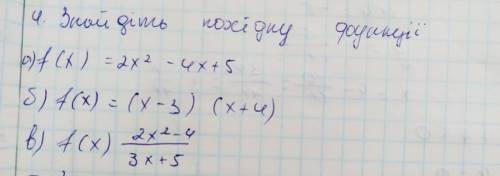 4. Знайдіть похідну функції
а) f(x) = 2x² - 4x + 5
б) f(x) = (x - 3) (x + 4)
в) f(x) \frac{2x² - 4}{3x + 5}